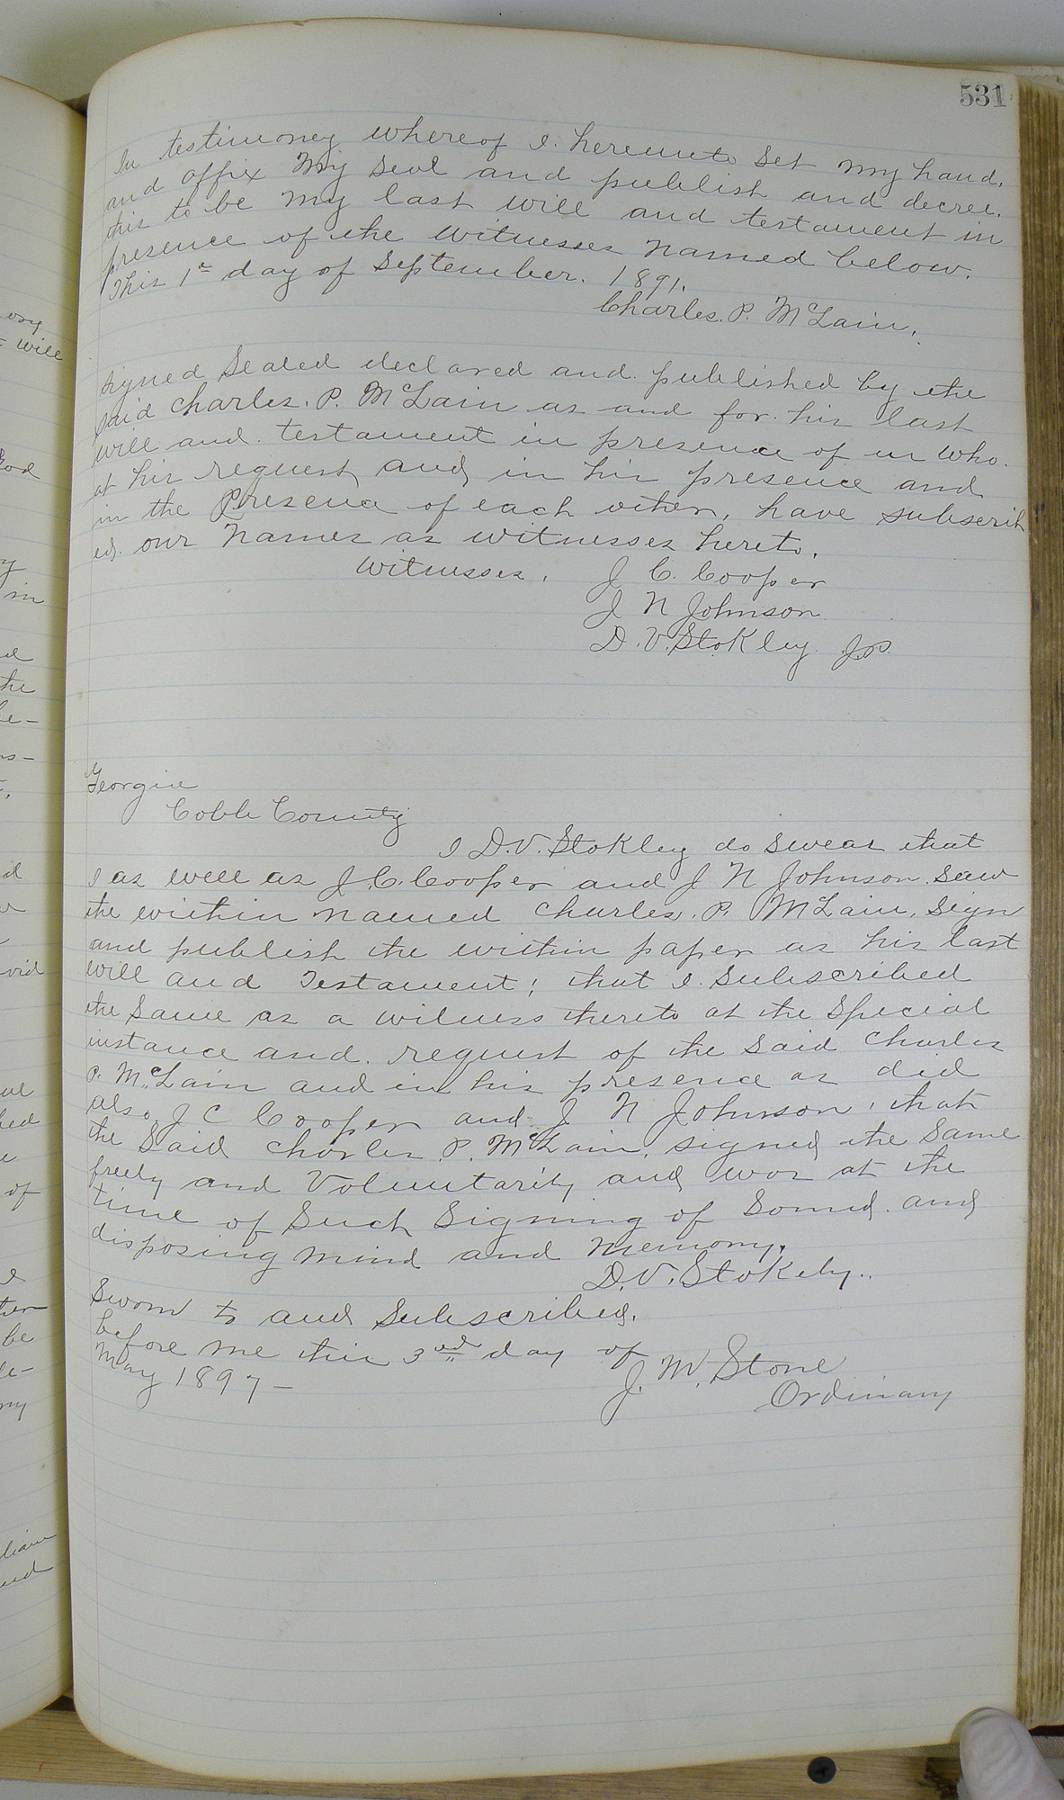 531
In testimoney whereof I. hereunto Set my hand.
and affix My Seal and publish and decree.
this to be My last will and testament in
presence of the witnesses Named below.
This 1st day of September. 1891.
Charles. P. McLain.
Signed Sealed declared and published by the
said Charles. P. McLain as and for his last
will and testament in presence of us who.
at his request, and in his presence and
in the Presence of each other, have subscrib
ed. our Names as witnesses hereto.
Witnesses. J C. Cooper
J N Johnson
D. V. Stokley J.P.
Georgia
Cobb County
I D.V. Stokley do Swear that
I as well as J.C. Cooper and J N Johnson. Saw
the within named Charles. P. McLain, Sign
and publish the within paper as his last
will and Testament; that I Subscribed
the Same as a witness thereto at the Special
instance and request of the Said Charles
P. McLain and in his presence as did
also J C Cooper and J N Johnson, that
the Said Charles. P. McLain. signed the Same
freely and Voluntarily and was at the
time of Such Signing of Sound and
disposing mind and Memory.
D.V. Stokely.
Sworn to and Subscribed.
before me this 3rd day of
May 1897 - J. W. Stone
Ordinary
ory
will
in
the
be-
d
vid
of
be
de-
my